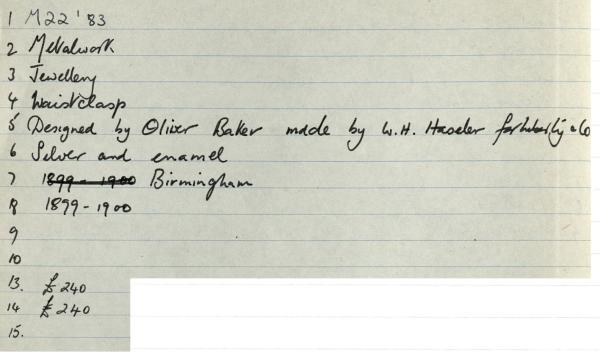 1 M22 '83
2 Metalwork
3 Jewellery
4 Waistclasp
5 Designed by Oliver Baker made by W.H. Haseler for Liberty & Co
6 Silver and enamel
7 1899-1900 Birmingham
8 1899-1900
9
10
13. £240
14 £240
15.